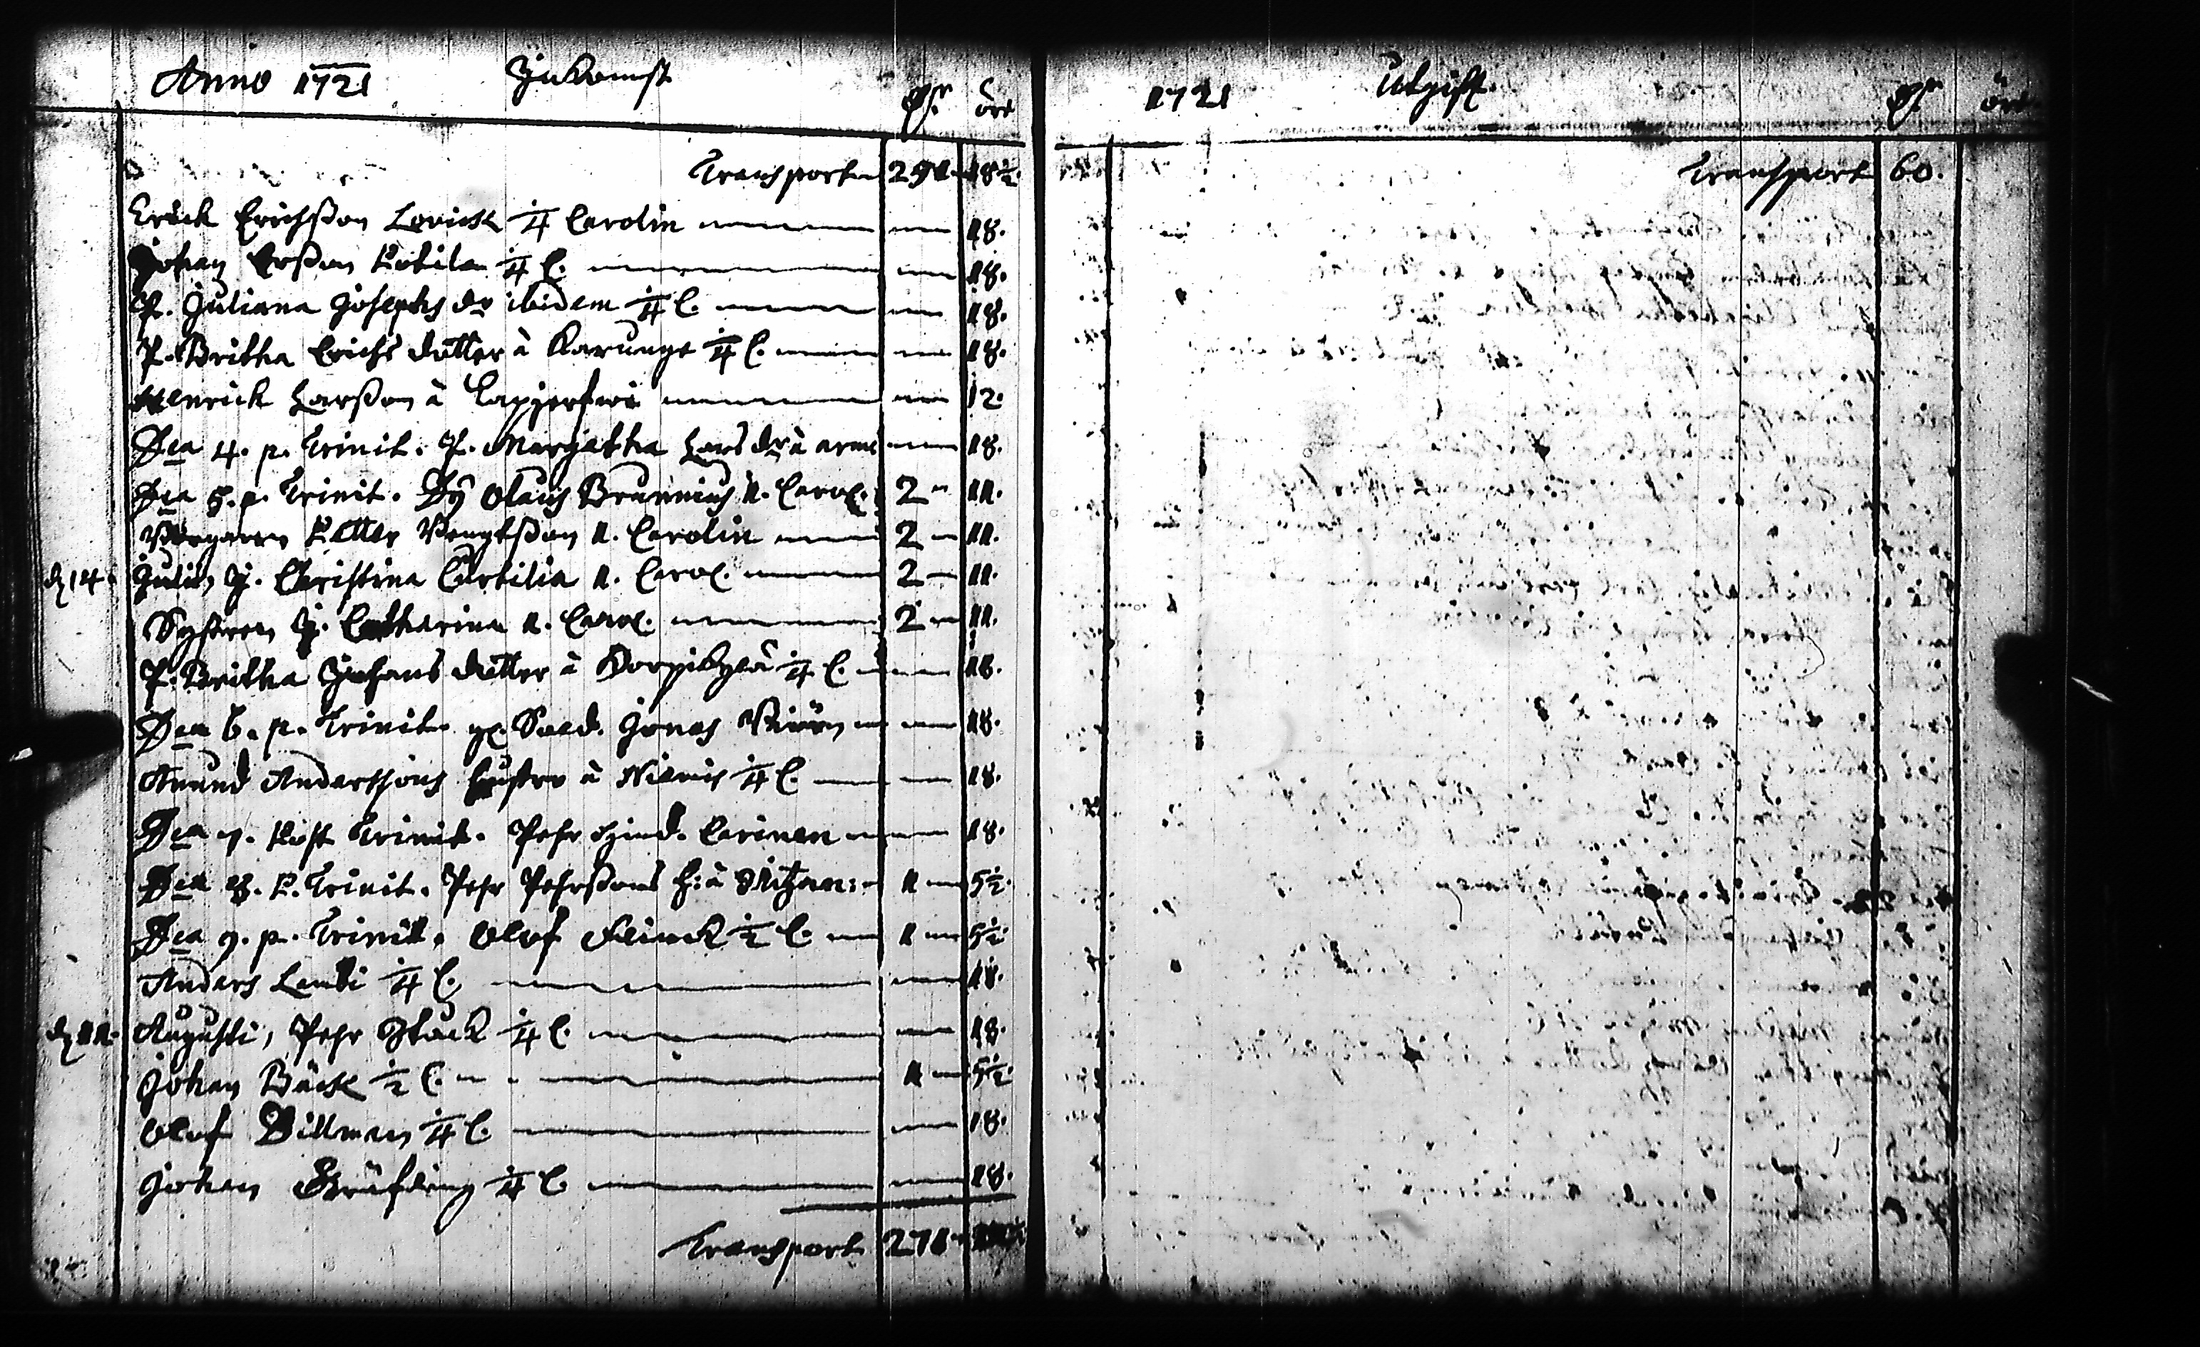 Anno 1721 Inkomst
Dr öre
Transport 251 18½
Erick Erichßon Lovick ¼ Carolin 18.
Johan Erßon Kokila ¼ C. 18.
H. Juliana Josephs dr ibidem ¼ C. 18.
P. Britha Erichs dutter à Karunge ¼ C. 18.
Henrick Larßon à 12.
Dca 4. p. Trinit. P. Margatha Lars dr à 18.
Dca 5. p. Trinit. Dn Olaus Brunnius 1. Carol. 2 11.
Borgaren Petter Bengtßon 1. Carolin 2 11.
d 14. Julii, J. Christina 1. Carol. 2 11.
Systren J. Catharina 1. Carol. 2 11.
P. Britha Johans dutter à Korpikylä ¼ C. 18.
Dca 6. p. Trinit. Jonas Biörn 18.
Anund Anderssons hustro à Niemis ¼ C. 18.
Dca 7. Post Trinit. Pehr 18.
Dca 8. P. Trinit. Pehr Pehrßons h: à 1 5½.
Dca 9. p. Trinit. Olof Flinck ½ C. 1 5½.
Anders ¼ C. 18.
d 11. Augusti, Pehr Stock ¼ C. 18.
Johan Bäck ½ C. 1 5½.
Olof Billman ¼ C. 18.
Johan ¼ C. 18.
Transport
1721 Utgift.
Dr öre
Transport 60.